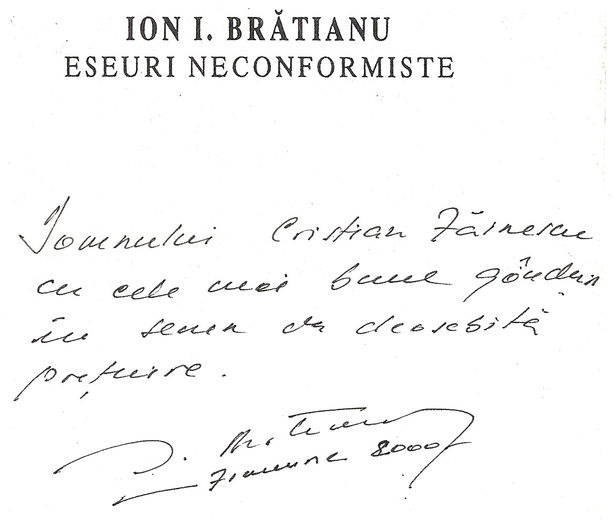 ION I. BRĂTIANU
ESEURI NECONFORMISTE
Domnului Cristian Făinescu
cu cele mai bune gânduri
în semn de deosebită
prețuire.
I. Brătianu
2000